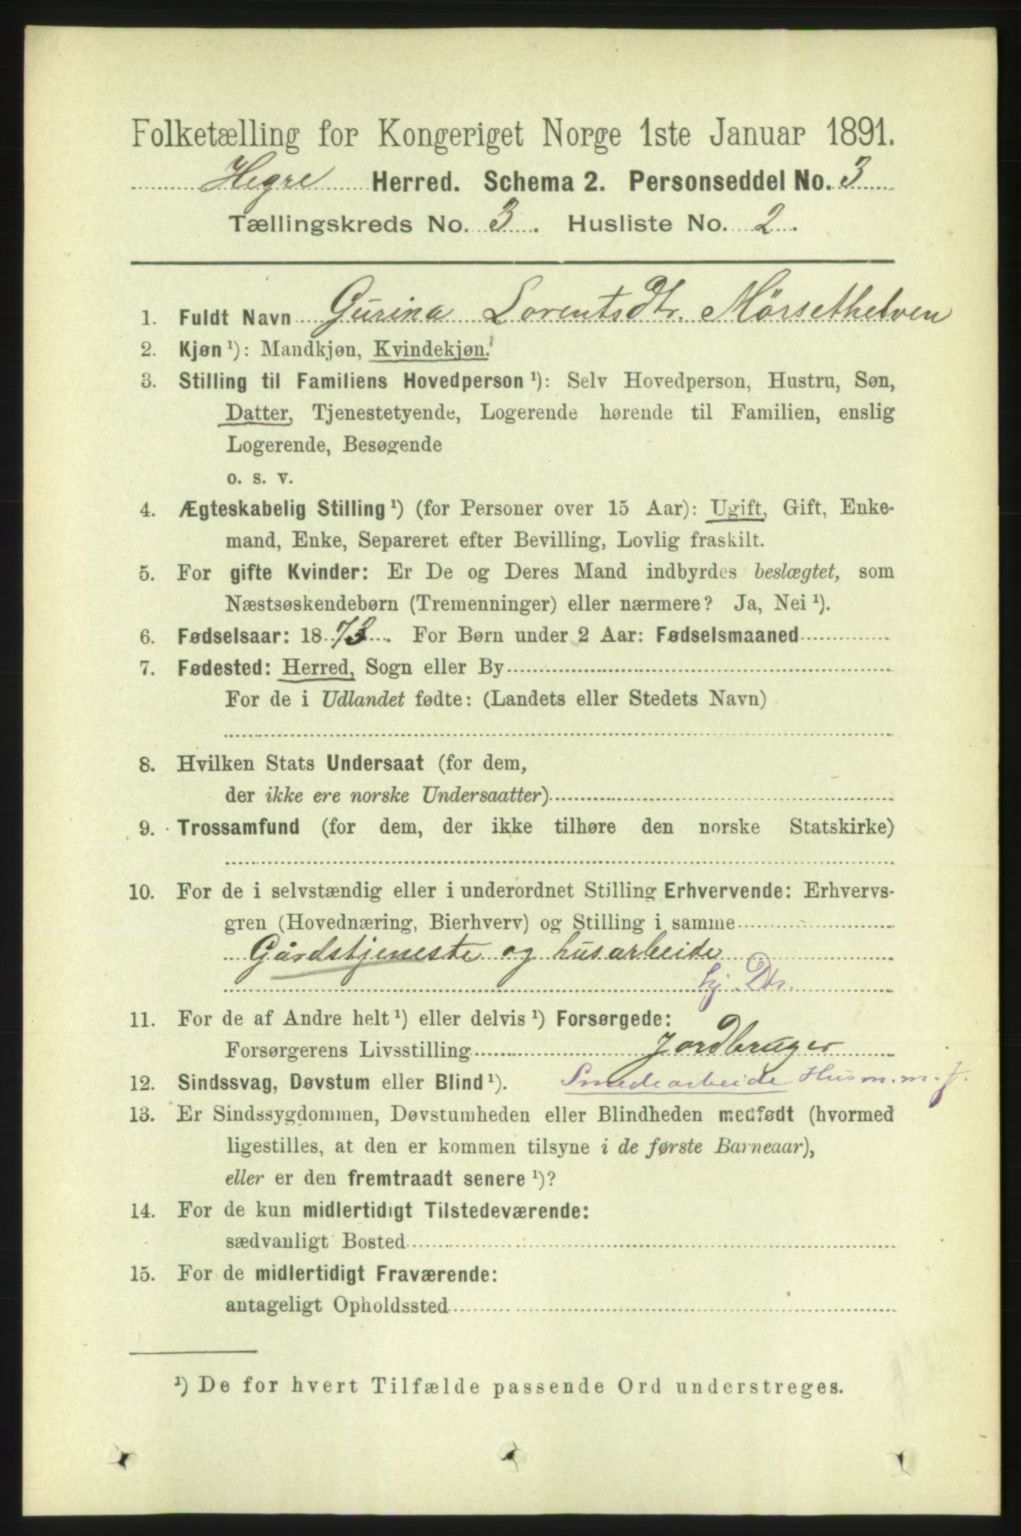 Folketælling for Kongeriget Norge 1ste Januar 1891.
Hegre Herred. Schema 2. Personseddel No. 3
Tællingskreds No. 3. Husliste No. 2.
1. Fuldt Navn Gurina Lorentsdtr. Mørsethelven
2. Kjøn ¹): Mandkjøn, Kvindekjøn.¹
3. Stilling til Familiens Hovedperson ¹): Selv Hovedperson, Hustru, Søn,
Datter, Tjenestetyende, Logerende hørende til Familien, enslig
Logerende, Besøgende
o. s. v.
4. Ægteskabelig Stilling ¹) (for Personer over 15 Aar): Ugift, Gift, Enke-
mand, Enke, Separeret efter Bevilling, Lovlig fraskilt.
5. For gifte Kvinder: Er De og Deres Mand indbyrdes beslægtet, som
Næstsøskendebørn (Tremenninger) eller nærmere? Ja, Nei ¹).
6. Fødselsaar: 1873. For Børn under 2 Aar: Fødselsmaaned
7. Fødested: Herred, Sogn eller By
For de i Udlandet fødte: (Landets eller Stedets Navn)
8. Hvilken Stats Undersaat (for dem,
der ikke ere norske Undersaatter)
9. Trossamfund (for dem, der ikke tilhøre den norske Statskirke)
10. For de i selvstændig eller i underordnet Stilling Erhvervende: Erhvervs-
gren (Hovednæring, Bierhverv) og Stilling i samme
Gårdstjeneste og husarbeide
tj. Dtr.
11. For de af Andre helt ¹) eller delvis ¹) Forsørgede:
Forsørgerens Livsstilling Jordbruger
12. Sindssvag, Døvstum eller Blind ¹). Smedearbeide Husm. m. j.
13. Er Sindssygdommen, Døvstumheden eller Blindheden medfødt (hvormed
ligestilles, at den er kommen tilsyne i de første Barneaar),
eller er den fremtraadt senere ¹)?
14. For de kun midlertidigt Tilstedeværende:
sædvanligt Bosted
15. For de midlertidigt Fraværende:
antageligt Opholdssted
¹) De for hvert Tilfælde passende Ord understreges.